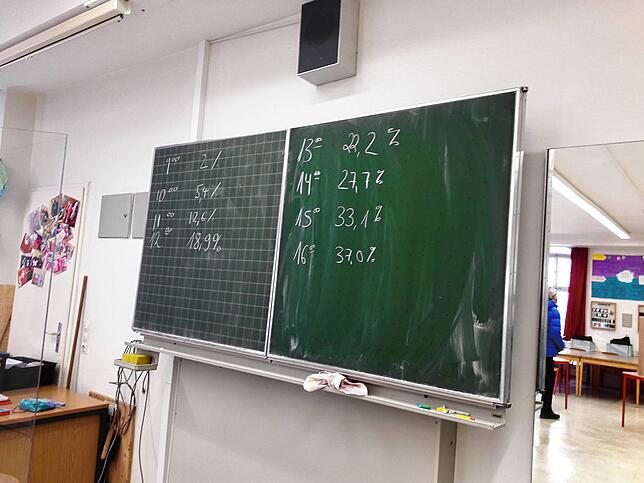 9⁰⁰ 2%
10⁰⁰ 5,4%
11⁰⁰ 12,6%
12⁰⁰ 18,99%
13⁰⁰ 22,2%
14⁰⁰ 27,7%
15⁰⁰ 33,1%
16⁰⁰ 37,0%